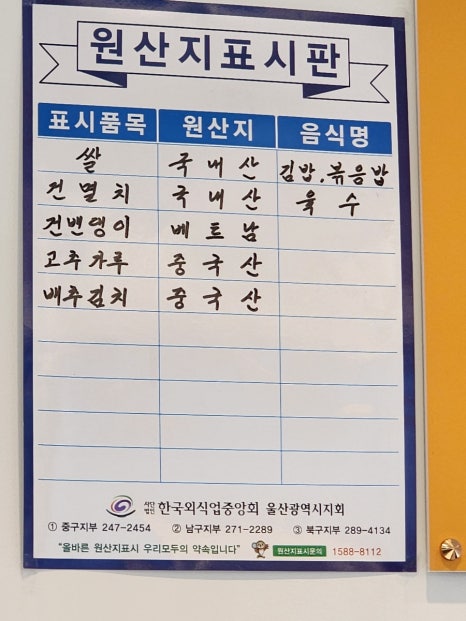 원산지표시판
표시품목 원산지 음식명
쌀 국내산 김밥.볶음밥
건멸치 국내산 육수
건밴댕이 베트남
고추가루 중국산
배추김치 중국산
사단법인 한국외식업중앙회 울산광역시지회
① 중구지부 247-2454 ② 남구지부 271-2289 ③ 북구지부 289-4134
"올바른 원산지표시 우리모두의 약속입니다" 원산지표시문의 1588-8112